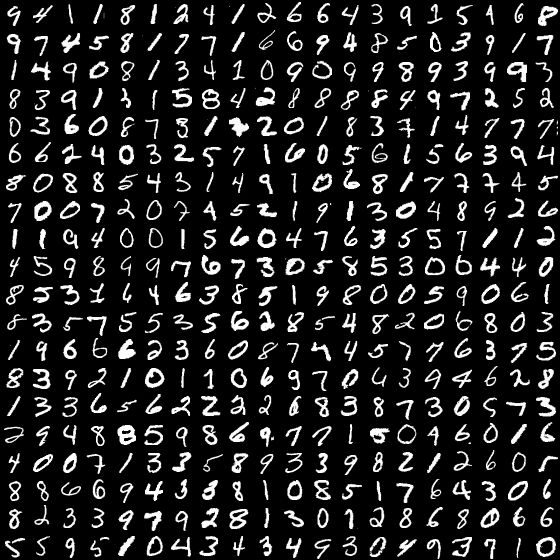 9 4 1 1 8 1 2 4 1 2 6 6 4 3 9 1 5 9 6 8
9 7 4 5 8 1 7 7 1 6 6 9 4 8 5 0 3 9 1 7
1 4 9 0 8 1 3 4 1 0 9 0 9 9 8 9 3 9 9 3
8 3 9 1 3 1 5 8 4 2 8 8 8 8 4 9 7 2 5 2
0 3 6 0 8 7 3 1 2 0 1 8 3 7 1 4 7 7 7
6 6 2 4 0 3 2 5 7 1 6 0 5 6 1 5 6 3 9 4
8 0 8 8 5 4 3 1 4 9 1 0 6 8 1 7 7 7 4 5
7 0 0 7 2 0 7 4 5 2 1 9 1 3 0 4 8 9 2 6
1 1 9 4 0 0 1 5 6 0 4 7 6 3 5 5 7 1 1 2
4 5 9 8 9 9 7 6 7 3 0 5 8 5 3 0 6 4 4 0
8 5 3 1 6 4 6 3 8 5 1 9 8 0 0 5 9 0 6 1
8 3 5 7 5 5 3 5 6 2 8 5 4 8 2 0 6 8 0 3
1 9 6 6 6 2 3 6 0 8 7 4 4 5 7 7 6 3 7 5
8 3 9 2 1 0 1 1 0 6 9 7 0 4 3 4 4 6 2 8
1 3 3 6 5 6 2 2 2 2 6 8 3 8 7 3 0 5 7 3
2 9 4 8 8 5 9 8 6 9 7 7 1 5 0 4 6 0 1 6
4 0 0 7 1 3 3 5 8 9 3 3 9 8 2 1 2 6 0 5
8 8 6 6 9 4 3 3 8 1 0 8 5 1 7 6 4 3 0 6
8 2 3 3 9 7 9 2 8 1 3 0 1 2 8 6 8 0 6 6
5 5 9 5 1 0 4 3 4 3 4 9 3 0 4 9 3 7 1 0